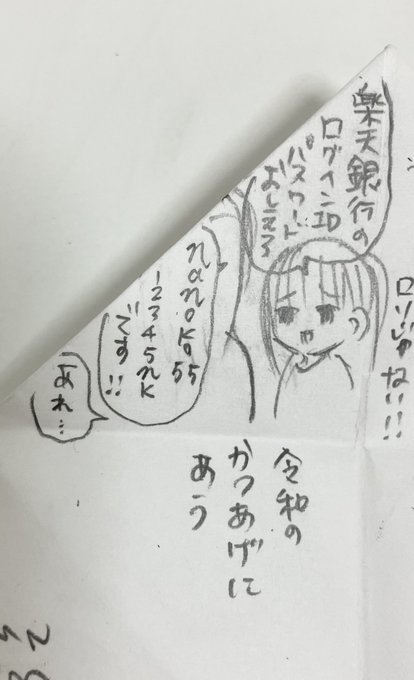 ロリじゃない!!
楽天銀行の
ログインID
パスワード
おしえろ
nanoko55
12345nk
です!!
あれ…
令和の
かつあげに
あう